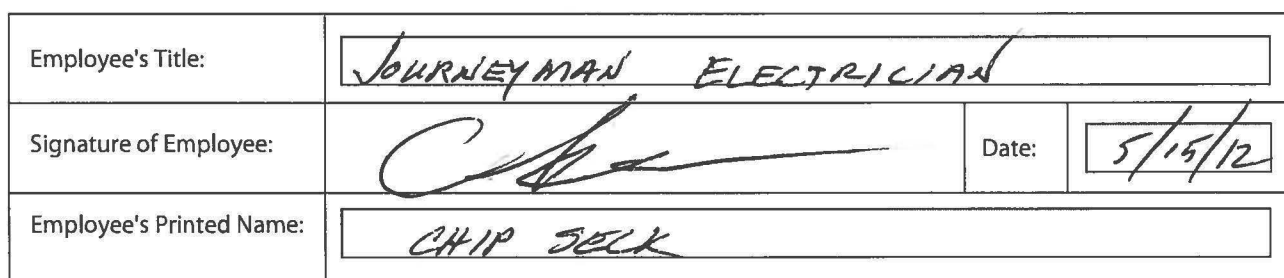 Employee's Title: JOURNEYMAN ELECTRICIAN
Signature of Employee: Date: 5/15/12
Employee's Printed Name: CHIP SECK